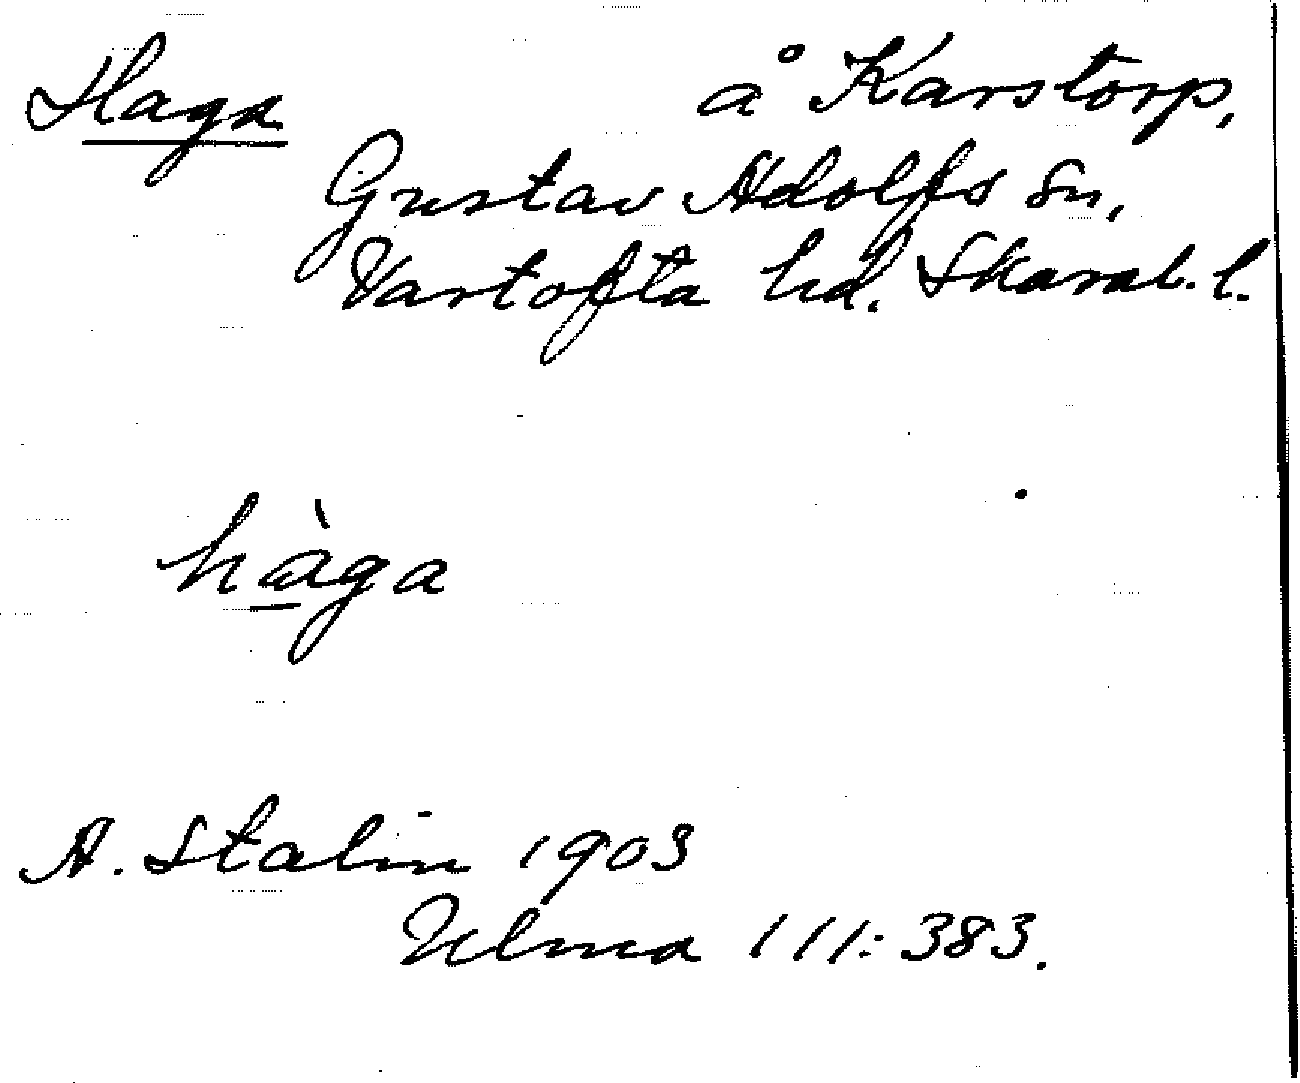 Haga å Karstorp,
Gustav Adolfs sn,
Vartofta hd. Skarab. l.
hàga
A. Stalin 1903
Ulma 111:383.